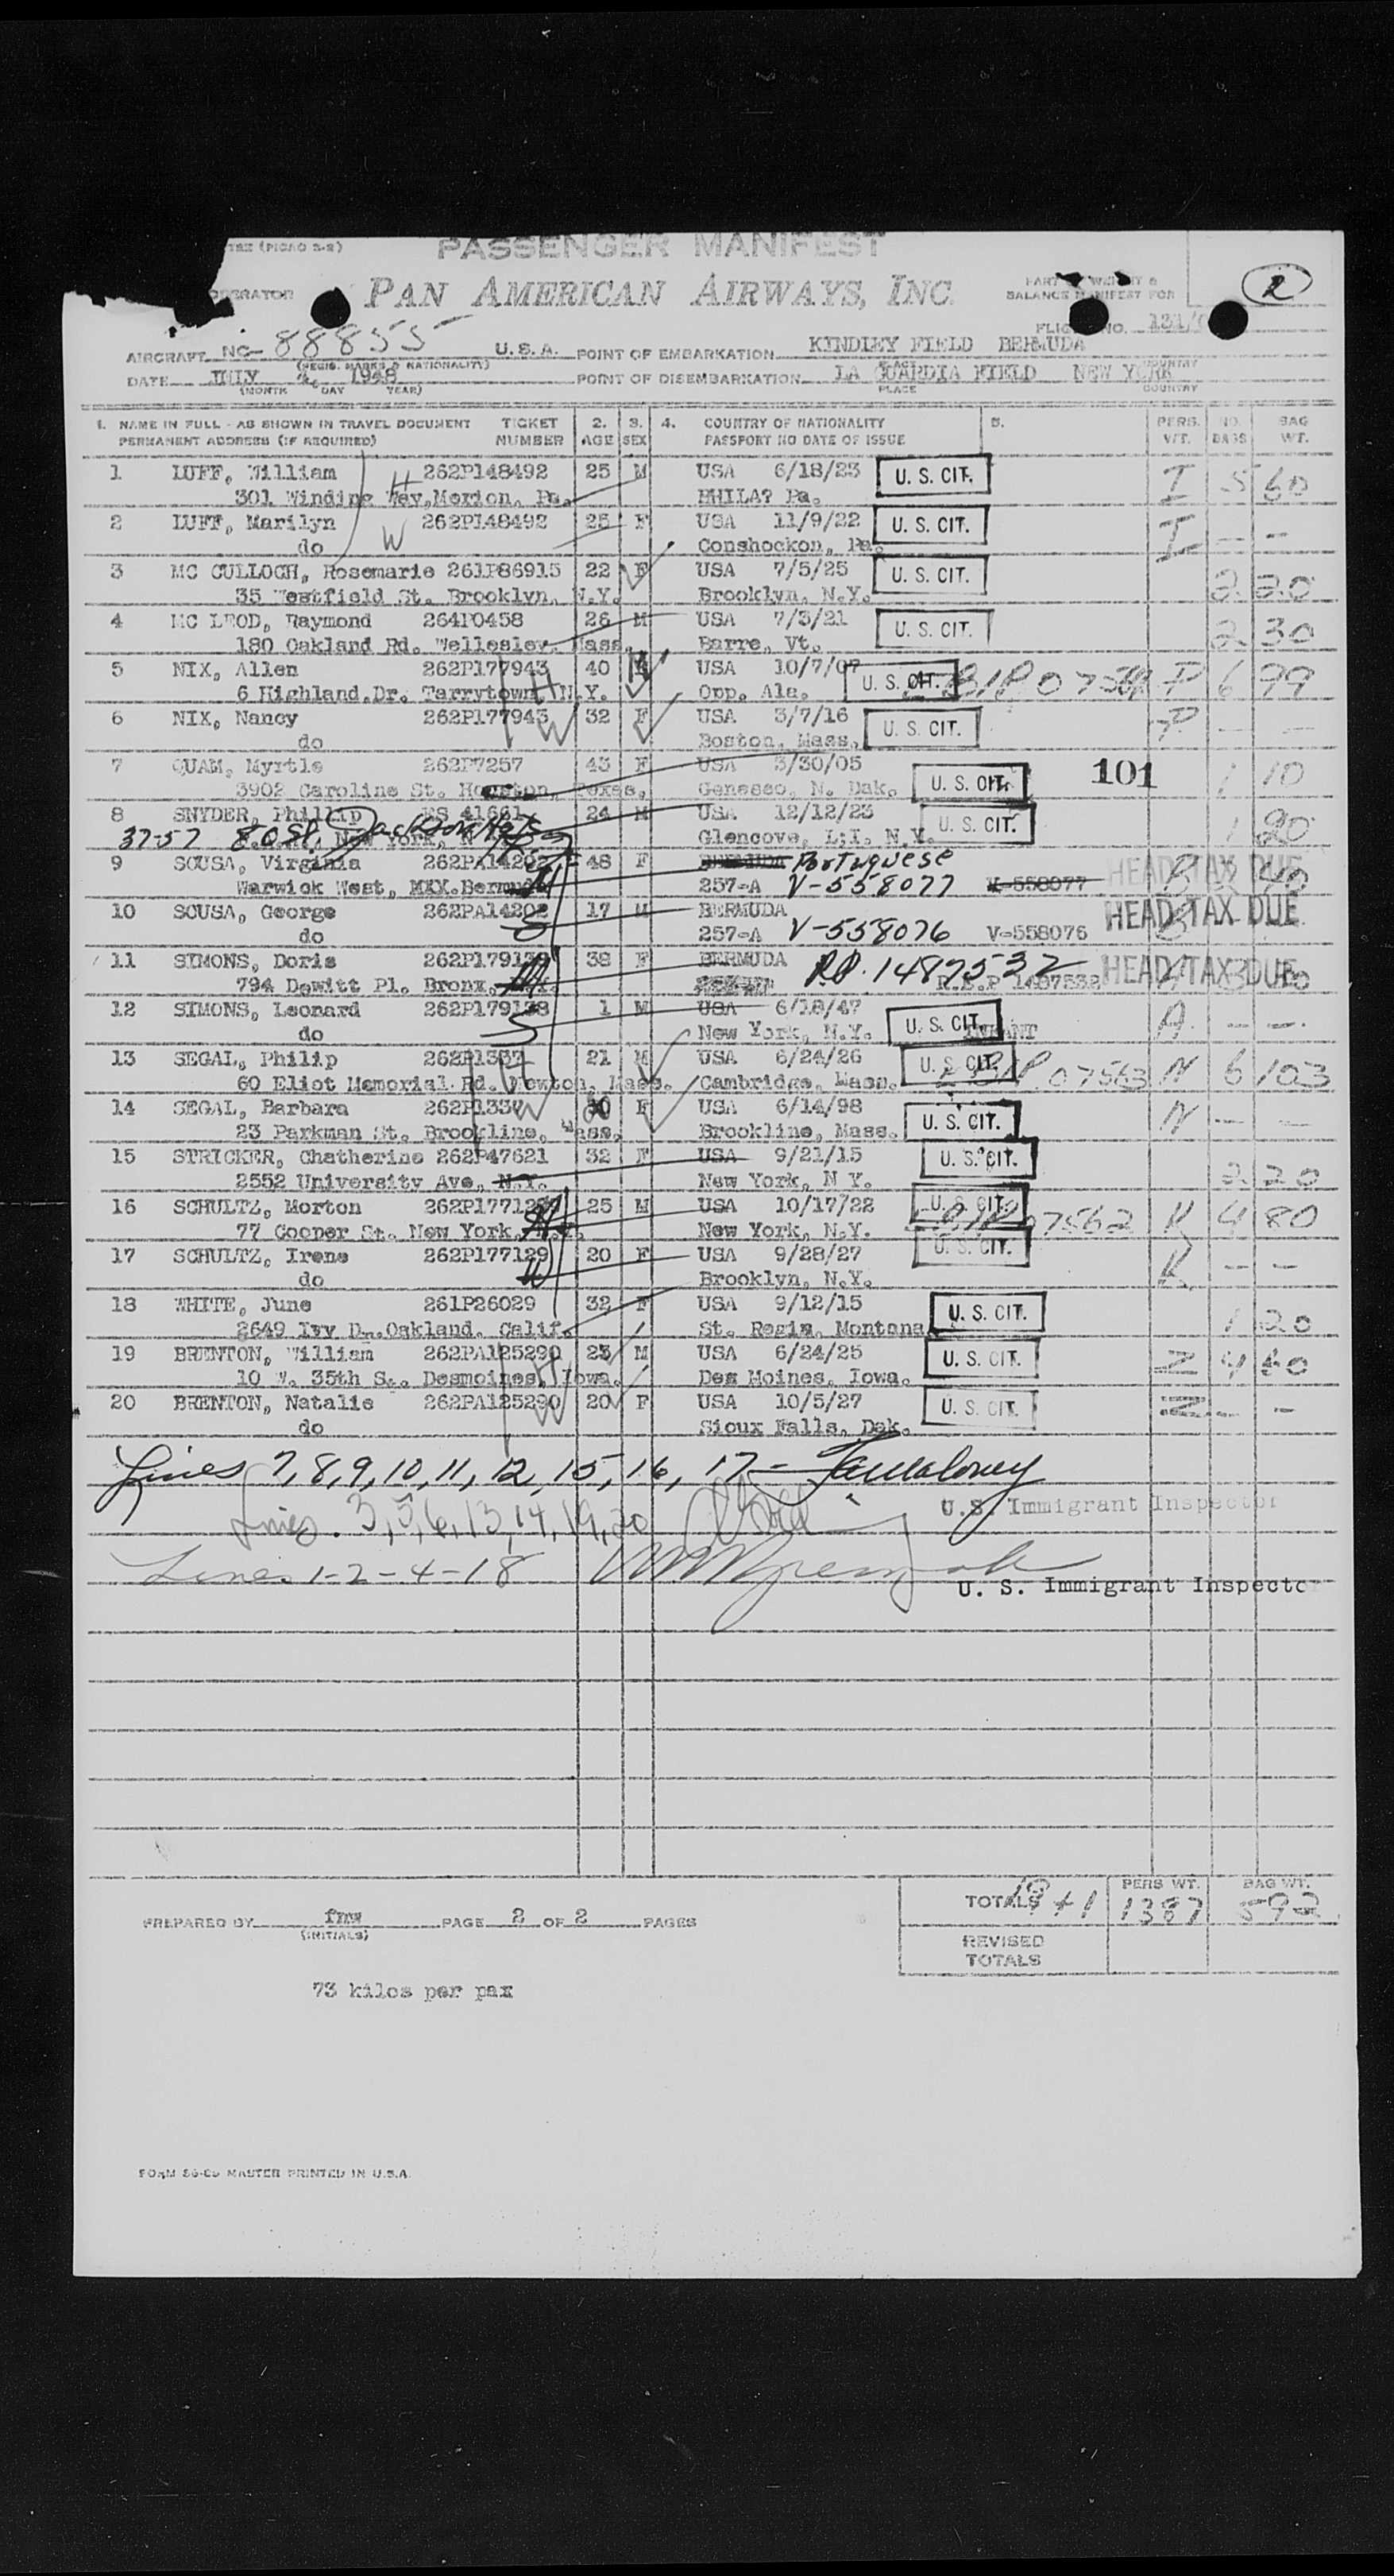 (PICAO 2-2)
PASSENGER MANIFEST
OPERATOR PAN AMERICAN AIRWAYS, INC. PART WEIGHT &
BALANCE MANIFEST FOR 2
FLIGHT NO. 131/
AIRCRAFT NC- 88855 U.S.A. POINT OF EMBARKATION KINDLEY FIELD BERMUDA
(REGIS. MARKS & NATIONALITY) COUNTRY
DATE JULY 4, 1948 POINT OF DISEMBARKATION LA GUARDIA FIELD NEW YORK
(MONTH DAY YEAR) PLACE COUNTRY
1. NAME IN FULL - AS SHOWN IN TRAVEL DOCUMENT TICKET 2. 3. 4. COUNTRY OF NATIONALITY 5. PERS. NO. BAG
PERMANENT ADDRESS (IF REQUIRED) NUMBER AGE SEX PASSPORT NO DATE OF ISSUE WT. BAGS WT.
1 LUFF, William 262P148492 25 M USA 6/18/23 U. S. CIT. I 5 60
301 Winding Way, Merion, Pa. H PHILA? Pa.
2 LUFF, Marilyn 262P148492 25 F USA 11/9/22 U. S. CIT. I - -
do W Conshockon, Pa.
3 MC CULLOCH, Rosemarie 261P86915 22 F USA 7/5/25 U. S. CIT.
35 Westfield St. Brooklyn, N.Y. Brooklyn, N.Y. 2 20
4 MC LEOD, Raymond 264P0458 26 M USA 7/3/21 U. S. CIT.
180 Oakland Rd. Wellesley, Mass. Barre, Vt. 2 30
5 NIX, Allen 262P177943 40 USA 10/7/07 U. S. CIT. P 6 99
6 Highland.Dr. Tarrytown N.Y. H Opp. Ala.
6 NIX, Nancy 262P177943 32 F USA 3/7/16 U. S. CIT. P - -
do W Boston, Mass.
7 QUAM, Myrtle 262P7257 43 F USA 3/30/05 U. S. CIT. 101 1 10
3902 Caroline St. Houston, Texas, Genesee, N. Dak.
8 SNYDER, Phillip ES 41661 24 M USA 12/12/23 U. S. CIT. 1 20
37-57 80 St, Jackson Hgts New York, N Glencove, L;I. N.Y.
9 SOUSA, Virginia 262PA14202 48 F BERMUDA Portuguese HEAD TAX DUE
Warwick West, MXX.Bermuda 257-A V-558077 V-558077
10 SOUSA, George 262PA14202 17 M BERMUDA HEAD TAX DUE
do S 257-A V-558076 V-558076
11 SIMONS, Doris 262P179139 38 F BERMUDA R.P. 1487532 HEAD TAX DUE
794 Dewitt Pl. Bronx, R.E.P 1487532
12 SIMONS, Leonard 262P179138 1 M USA 6/18/47 U. S. CIT. A - -
do S New York, N.Y. INFANT
13 SEGAL, Philip 262P1337 21 M USA 6/24/26 U. S. CIT. 07563 N 6 103
60 Eliot Memorial Rd. Newton, Mass. H Cambridge, Mass.
14 SEGAL, Barbara 262P1337 F USA 6/14/98 U. S. CIT. N - -
23 Parkman St. Brookline, Mass. W Brookline, Mass.
15 STRICKER, Chatherine 262P47621 32 F USA 9/21/15 U. S. CIT.
2552 University Ave, N.Y. New York, N Y. 2 20
16 SCHULTZ, Morton 262P177129 25 M USA 10/17/22 U. S. CIT. 07562 K 4 80
77 Cooper St. New York, H New York, N.Y.
17 SCHULTZ, Irene 262P177129 20 F USA 9/28/27 U. S. CIT. K - -
do W Brooklyn, N.Y.
18 WHITE, June 261P26029 32 F USA 9/12/15 U. S. CIT.
2649 Ivy Dr.Oakland. Calif. St. Regis, Montana 1 20
19 BRENTON, William 262PA125290 23 M USA 6/24/25 U. S. CIT. N 4 60
10 W. 35th S.. Desmoines, Iowa. H Des Moines, Iowa.
20 BRENTON, Natalie 262PA125290 20 F USA 10/5/27 U. S. CIT. N - -
do W Sioux Falls, Dak.
Lines 7, 8, 9, 10, 11, 12, 15, 16, 17-
Lines. 3, 5, 6, 13, 14, 19, 20 U.S. Immigrant Inspector
Lines 1-2-4-18
U. S. Immigrant Inspector
TOTALS 18+1 PERS WT. 1387 BAG WT. 592
PREPARED BY fmw PAGE 2 OF 2 PAGES
(INITIALS)
REVISED
TOTALS
73 kilos per pax
MASTER PRINTED IN U.S.A.